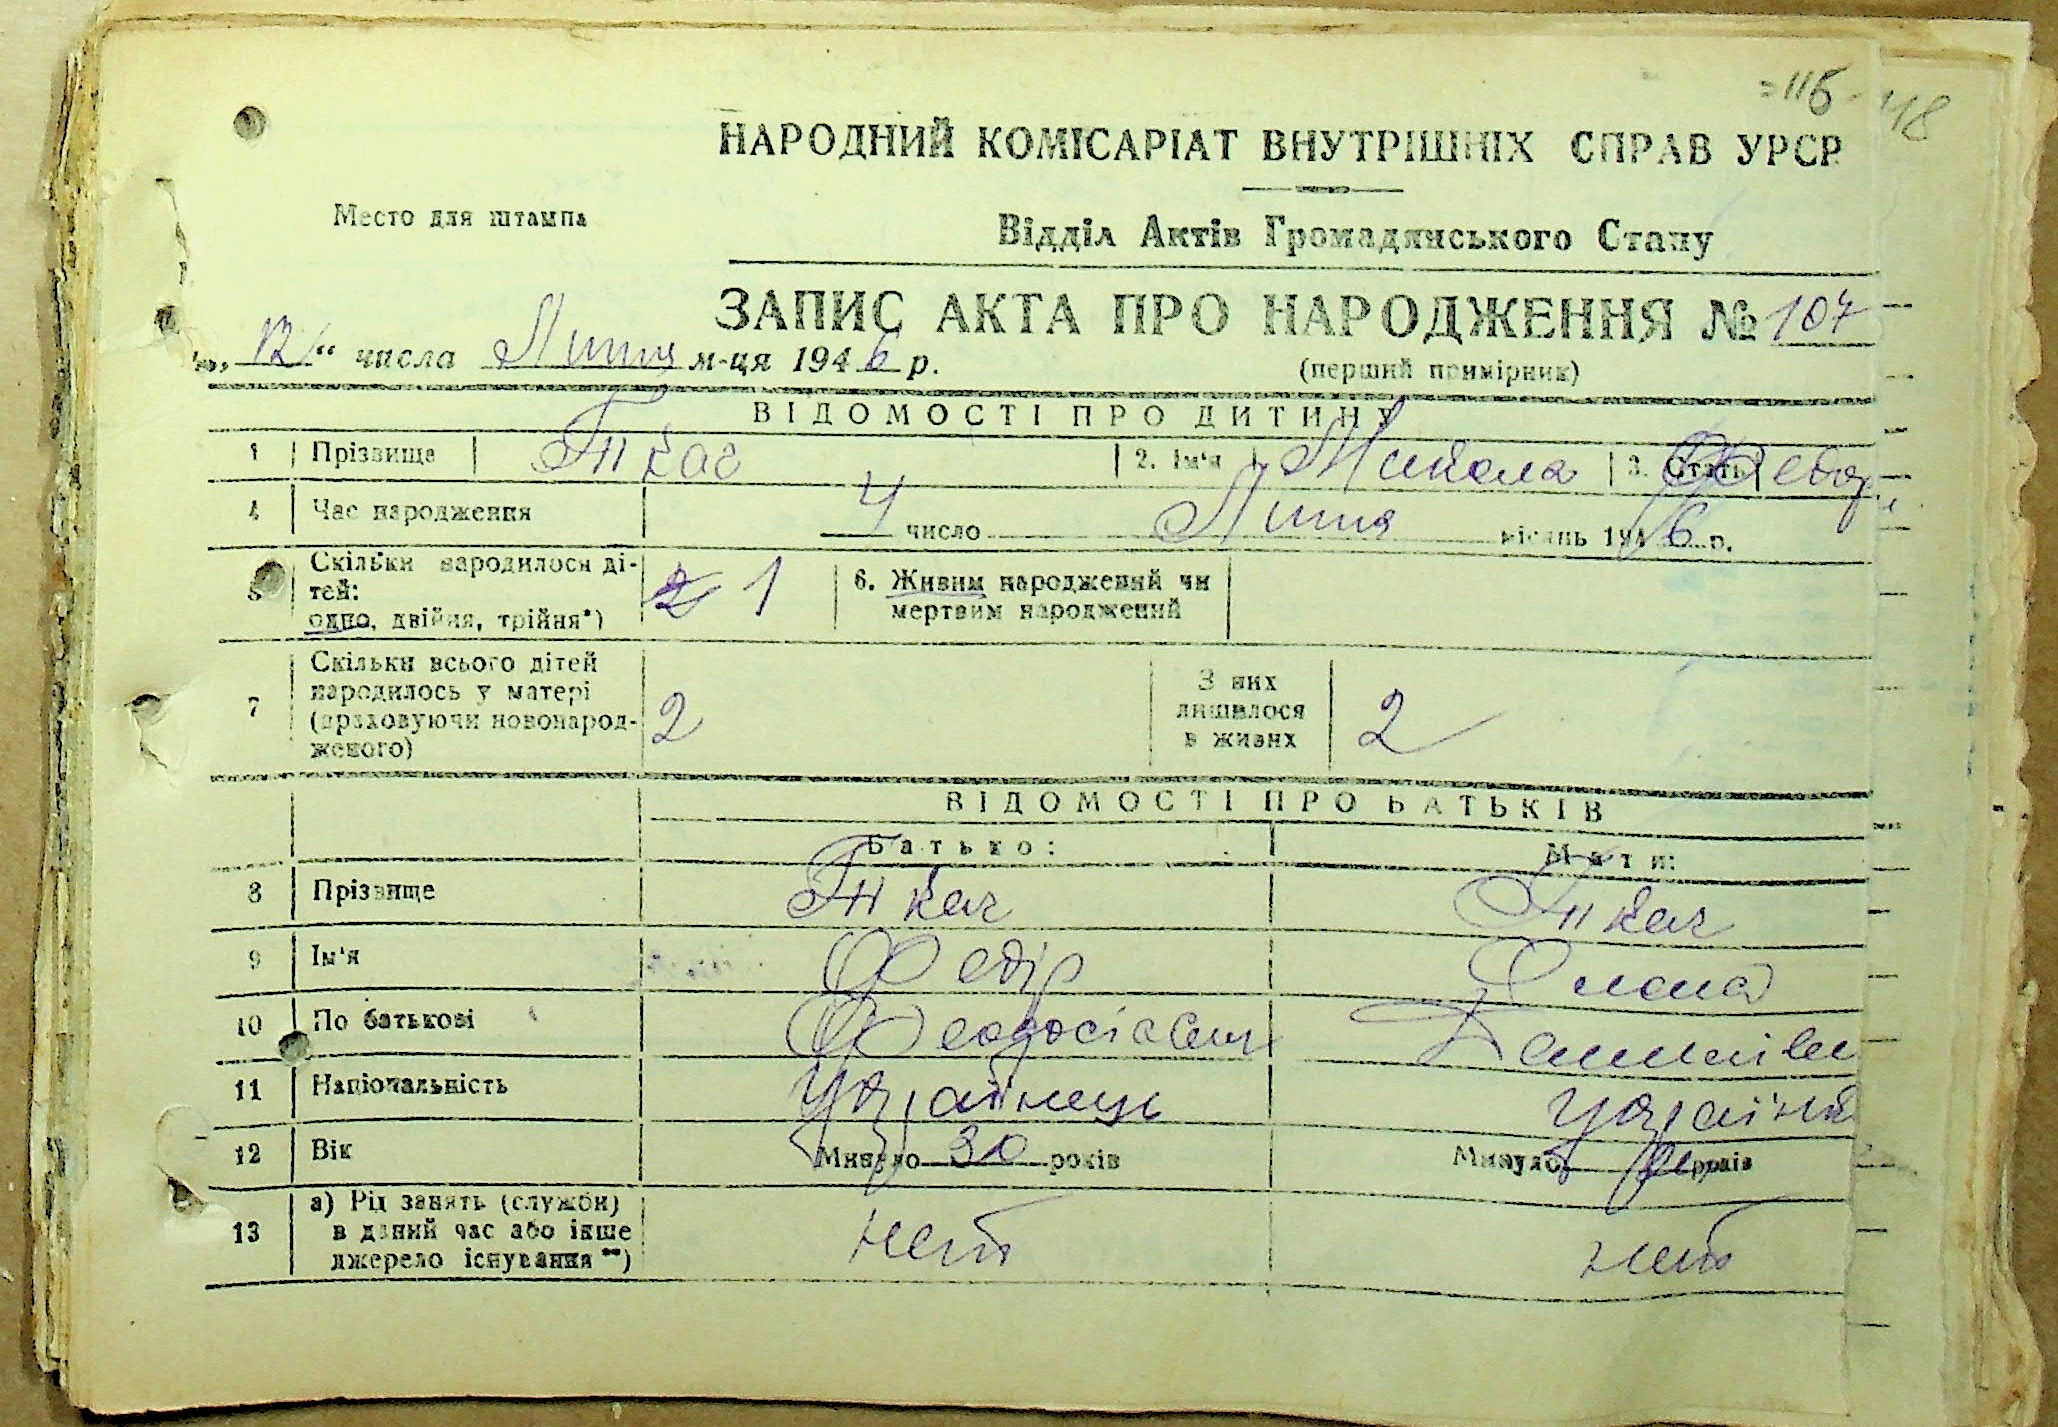 116 48
НАРОДНИЙ КОМІСАРІАТ ВНУТРІШНІХ СПРАВ УРСР
Место для штампа
Відділ Актів Громадянського Стану
ЗАПИС АКТА ПРО НАРОДЖЕННЯ № 107
„12“ числа Липня м-ця 1946 р.
(перший примірник)
ВІДОМОСТІ ПРО ДИТИНУ
1 Прізвище Ткач 2. Ім'я Микола 3. Стать Федор
4 Час народження 4 число Липня місяць 1946 р.
5 Скільки народилося ді-
тей:
одно, двійня, трійня*) 2 1 6. Живим народжений чи
мертвим народжений
7 Скільки всього дітей
народилось у матері
(враховуючи новонарод-
женого) 2 З них
лишилося
в живих 2
ВІДОМОСТІ ПРО БАТЬКІВ
Батько: Мати:
8 Прізвище Ткач Ткач
9 Ім'я Федір Олена
10 По батькові Феодосієвич
11 Національність Українець Українк
12 Вік Минуло 30 років Минуло років
13 а) Рід занять (служби)
в даний час або інше
джерело існування **) нет нет